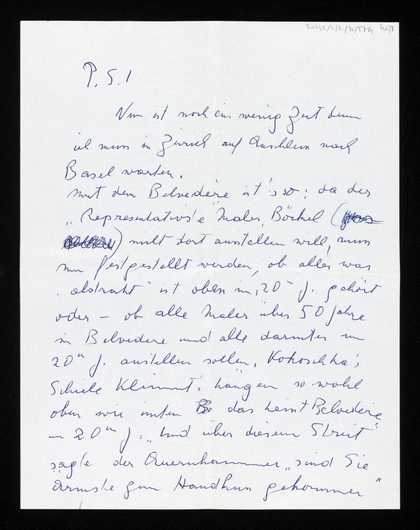 P.S.!
Nun ist noch ein wenig Zeit denn
ich muss in Zürich auf Anschluss nach
Basel warten.
Mit dem Belvedere ist's so: da der
„Representativste" Maler, Böckel (
) nicht dort ausstellen will, muss
nur festgestellt werden, ob alles was
„abstrakt" ist oben im „20er J." gehört
oder – ob alle Maler über 50 Jahre
im Belvedere und alle darunter im
20er J. ausstellen sollen. Kokoschka,
Schiele Klimmt. hängen sowohl
oben wie unten das heisst Belvedere
u 20er J. „Und über diesem Streit"
sagte der Auernhammer „sind Sie
ärmste zum Handkuss gekommen"